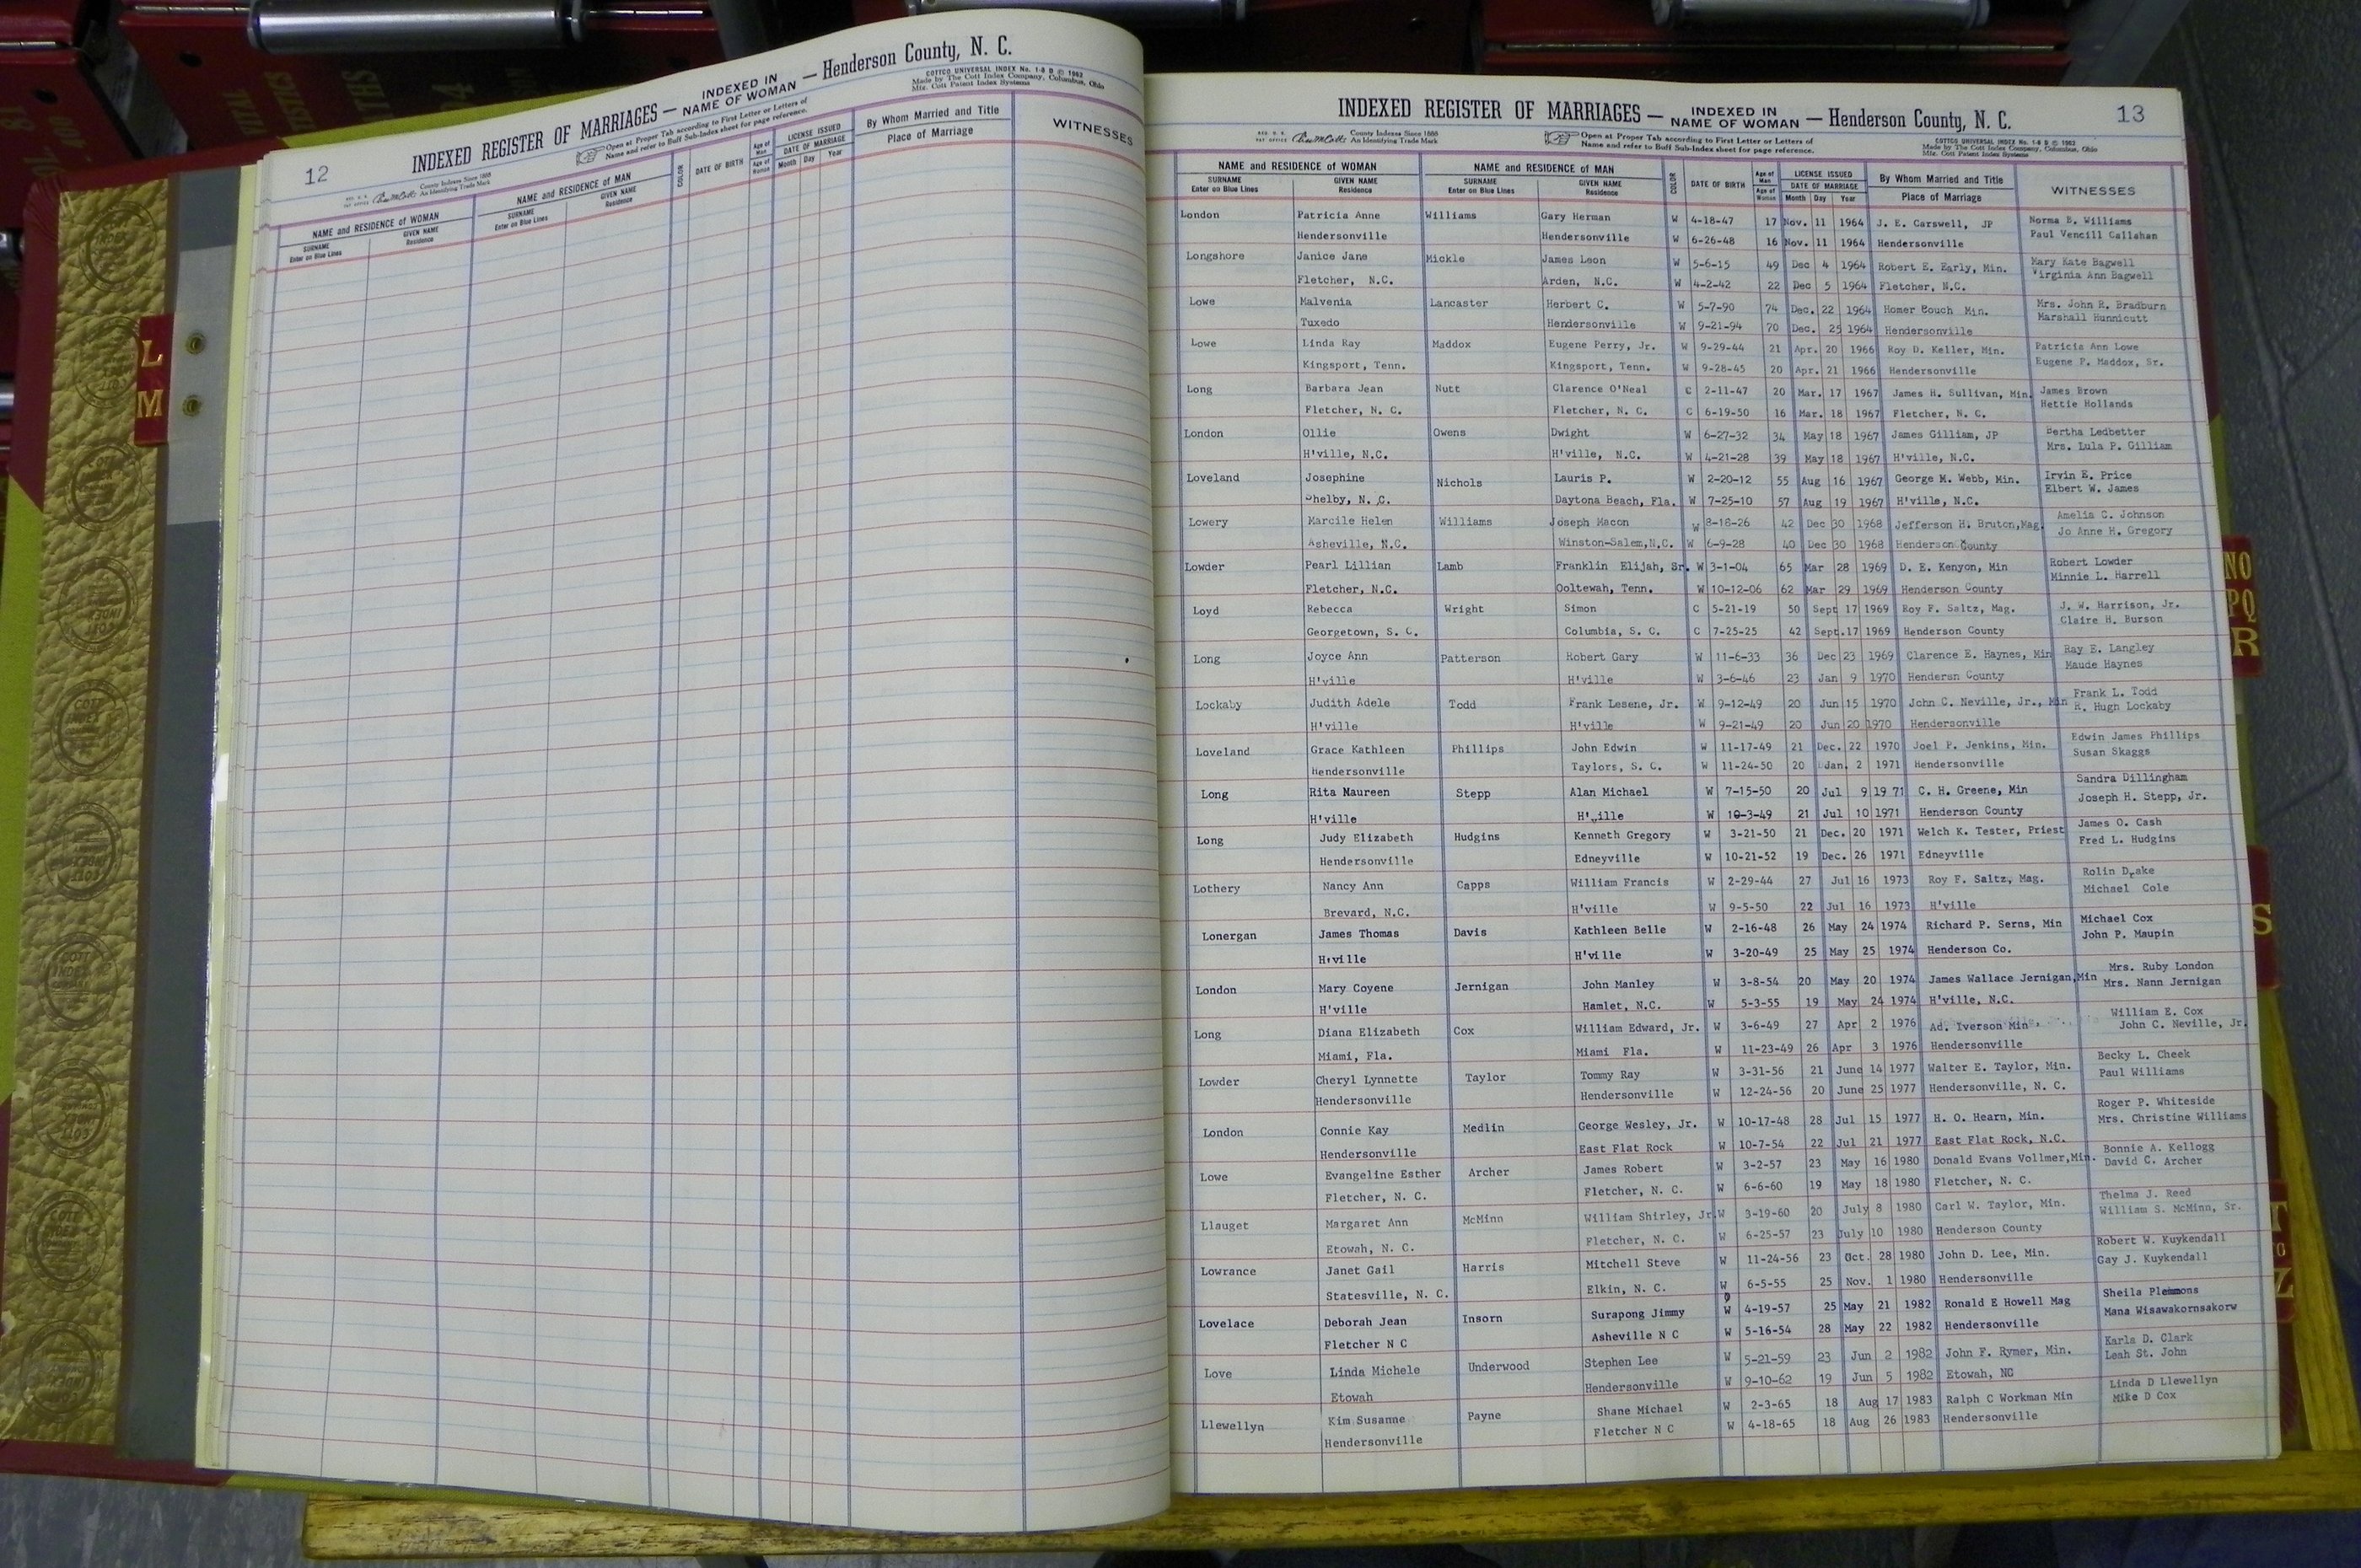 12
INDEXED REGISTER OF MARRIAGES — INDEXED IN NAME OF WOMAN — Henderson County, N. C.
County Indexes Since 1888
An Identifying Trade Mark
Open at Proper Tab according to First Letter or Letters of
Name and refer to Buff Sub-Index sheet for page reference.
COTTCO UNIVERSAL INDEX No. 1-8 D © 1962
Made by The Cott Index Company, Columbus, Ohio
Mfg. Cott Patent Index Systems
NAME and RESIDENCE OF WOMAN NAME and RESIDENCE OF MAN COLOR DATE OF BIRTH Age of Man LICENSE ISSUED By Whom Married and Title WITNESSES
SURNAME GIVEN NAME SURNAME GIVEN NAME Age of Woman DATE OF MARRIAGE Place of Marriage
Enter on Blue Lines Residence Enter on Blue Lines Residence Month Day Year
L
M
INDEXED REGISTER OF MARRIAGES — INDEXED IN NAME OF WOMAN — Henderson County, N. C. 13
County Indexes Since 1888
An Identifying Trade Mark
Open at Proper Tab according to First Letter or Letters of
Name and refer to Buff Sub-Index sheet for page reference.
COTTCO UNIVERSAL INDEX No. 1-8 D © 1962
Made by The Cott Index Company, Columbus, Ohio
Mfg. Cott Patent Index Systems
NAME and RESIDENCE OF WOMAN NAME and RESIDENCE OF MAN COLOR DATE OF BIRTH Age of Man LICENSE ISSUED By Whom Married and Title WITNESSES
SURNAME GIVEN NAME SURNAME GIVEN NAME Age of Woman DATE OF MARRIAGE Place of Marriage
Enter on Blue Lines Residence Enter on Blue Lines Residence Month Day Year
London Patricia Anne Williams Gary Herman W 4-18-47 17 Nov. 11 1964 J. E. Carswell, JP Norma B. Williams
Hendersonville Hendersonville W 6-26-48 16 Nov. 11 1964 Hendersonville Paul Vencill Callahan
Longshore Janice Jane Mickle James Leon W 5-6-15 49 Dec 4 1964 Robert E. Early, Min. Mary Kate Bagwell
Fletcher, N.C. Arden, N.C. W 4-2-42 22 Dec 5 1964 Fletcher, N.C. Virginia Ann Bagwell
Lowe Malvenia Lancaster Herbert C. W 5-7-90 74 Dec. 22 1964 Homer Couch Min. Mrs. John R. Bradburn
Tuxedo Hendersonville W 9-21-94 70 Dec. 25 1964 Hendersonville Marshall Hunnicutt
Lowe Linda Ray Maddox Eugene Perry, Jr. W 9-29-44 21 Apr. 20 1966 Roy D. Keller, Min. Patricia Ann Lowe
Kingsport, Tenn. Kingsport, Tenn. W 9-28-45 20 Apr. 21 1966 Hendersonville Eugene P. Maddox, Sr.
Long Barbara Jean Nutt Clarence O'Neal C 2-11-47 20 Mar. 17 1967 James H. Sullivan, Min. James Brown
Fletcher, N. C. Fletcher, N. C. C 6-19-50 16 Mar. 18 1967 Fletcher, N. C. Hettie Hollands
London Ollie Owens Dwight W 6-27-32 34 May 18 1967 James Gilliam, JP Bertha Ledbetter
H'ville, N.C. H'ville, N.C. W 4-21-28 39 May 18 1967 H'ville, N.C. Mrs. Lula P. Gilliam
Loveland Josephine Nichols Lauris P. W 2-20-12 55 Aug 16 1967 George M. Webb, Min. Irvin E. Price
Shelby, N. C. Daytona Beach, Fla. W 7-25-10 57 Aug 19 1967 H'ville, N.C. Elbert W. James
Lowery Marcile Helen Williams Joseph Macon W 8-18-26 42 Dec 30 1968 Jefferson H. Bruton,Mag. Amelia C. Johnson
Asheville, N.C. Winston-Salem,N.C. W 6-9-28 40 Dec 30 1968 Henderson County Jo Anne H. Gregory
Lowder Pearl Lillian Lamb Franklin Elijah, Sr. W 3-1-04 65 Mar 28 1969 D. E. Kenyon, Min Robert Lowder
Fletcher, N.C. Ooltewah, Tenn. W 10-12-06 62 Mar 29 1969 Henderson County Minnie L. Harrell
Loyd Rebecca Wright Simon C 5-21-19 50 Sept 17 1969 Roy F. Saltz, Mag. J. W. Harrison, Jr.
Georgetown, S. C. Columbia, S. C. C 7-25-25 42 Sept.17 1969 Henderson County Claire H. Burson
Long Joyce Ann Patterson Robert Gary W 11-6-33 36 Dec 23 1969 Clarence E. Haynes, Min Ray E. Langley
H'ville H'ville W 3-6-46 23 Jan 9 1970 Henderan County Maude Haynes
Lockaby Judith Adele Todd Frank Lesene, Jr. W 9-12-49 20 Jun 15 1970 John C. Neville, Jr., Min Frank L. Todd
H'ville H'ville W 9-21-49 20 Jun 20 1970 Hendersonville R. Hugh Lockaby
Loveland Grace Kathleen Phillips John Edwin W 11-17-49 21 Dec. 22 1970 Joel P. Jenkins, Min. Edwin James Phillips
Hendersonville Taylors, S. C. W 11-24-50 20 Jan. 2 1971 Hendersonville Susan Skaggs
Long Rita Naureen Stepp Alan Michael W 7-15-50 20 Jul 9 19 71 C. H. Greene, Min Sandra Dillingham
H'ville H'ville W 10-3-49 21 Jul 10 1971 Henderson County Joseph H. Stepp, Jr.
Long Judy Elizabeth Hudgins Kenneth Gregory W 3-21-50 21 Dec. 20 1971 Welch K. Tester, Priest James O. Cash
Hendersonville Edneyville W 10-21-52 19 Dec. 26 1971 Edneyville Fred L. Hudgins
Lothery Nancy Ann Capps William Francis W 2-29-44 27 Jul 16 1973 Roy F. Saltz, Mag. Rolin Drake
Brevard, N.C. H'ville W 9-5-50 22 Jul 16 1973 H'ville Michael Cole
Lonergan James Thomas Davis Kathleen Belle W 2-16-48 26 May 24 1974 Richard P. Serns, Min Michael Cox
H'ville H'ville W 3-20-49 25 May 25 1974 Henderson Co. John P. Maupin
London Mary Coyene Jernigan John Manley W 3-8-54 20 May 20 1974 James Wallace Jernigan,Min Mrs. Ruby London
H'ville Hamlet, N.C. W 5-3-55 19 May 24 1974 H'ville, N.C. Mrs. Nann Jernigan
Long Diana Elizabeth Cox William Edward, Jr. W 3-6-49 27 Apr 2 1976 Ad. Iverson Min William E. Cox
Miami, Fla. Miami Fla. W 11-23-49 26 Apr 3 1976 Hendersonville John C. Neville, Jr.
Lowder Cheryl Lynnette Taylor Tommy Ray W 3-31-56 21 June 14 1977 Walter E. Taylor, Min. Becky L. Cheek
Hendersonville Hendersonville W 12-24-56 20 June 25 1977 Hendersonville, N. C. Paul Williams
London Connie Kay Medlin George Wesley, Jr. W 10-17-48 28 Jul 15 1977 H. O. Hearn, Min. Roger P. Whiteside
Hendersonville East Flat Rock W 10-7-54 22 Jul 21 1977 East Flat Rock, N.C. Mrs. Christine Williams
Lowe Evangeline Esther Archer James Robert W 3-2-57 23 May 16 1980 Donald Evans Vollmer,Min. Bonnie A. Kellogg
Fletcher, N. C. Fletcher, N. C. W 6-6-60 19 May 18 1980 Fletcher, N. C. David C. Archer
Llauget Margaret Ann McMinn William Shirley, Jr. W 3-19-60 20 July 8 1980 Carl W. Taylor, Min. Thelma J. Reed
Etowah, N. C. Fletcher, N. C. W 6-25-57 23 July 10 1980 Henderson County William S. McMinn, Sr.
Lowrance Janet Gail Harris Mitchell Steve W 11-24-56 23 Oct. 28 1980 John D. Lee, Min. Robert W. Kuykendall
Statesville, N. C. Elkin, N. C. W 6-5-55 25 Nov. 1 1980 Hendersonville Gay J. Kuykendall
Lovelace Deborah Jean Insorn Surapong Jimmy W 4-19-57 25 May 21 1982 Ronald E Howell Mag Sheila Plemmons
Fletcher N C Asheville N C W 5-16-54 28 May 22 1982 Hendersonville Mana Wisawakornsakorw
Love Linda Michele Underwood Stephen Lee W 5-21-59 23 Jun 2 1982 John F. Rymer, Min. Karla D. Clark
Etowah Hendersonville W 9-10-62 19 Jun 5 1982 Etowah, NC Leah St. John
Llewellyn Kim Susanne Payne Shane Michael W 2-3-65 18 Aug 17 1983 Ralph C Workman Min Linda D Llewellyn
Hendersonville Fletcher N C W 4-18-65 18 Aug 26 1983 Hendersonville Mike D Cox
NO
PQ
R
S